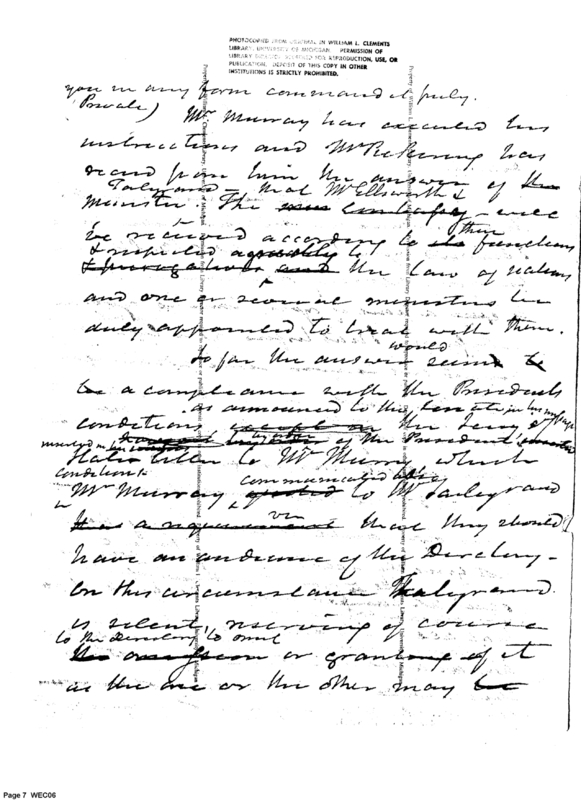 PHOTOCOPIED FROM ORIGINAL IN WILLIAM L. CLEMENTS
LIBRARY, UNIVERSITY OF MICHIGAN. PERMISSION OF
LIBRARY REQUIRED FOR REPRODUCTION, USE, OR
PUBLICATION. DEPOSIT OF THIS COPY IN OTHER
INSTITUTIONS IS STRICTLY PROHIBITED.
you in any form command it freely.
Private) Mr Murray has executed his
instructions and Mr Pickering has
recd from him the answer of the
Talyrand - that Mr Ellsworth &
minister. The - will
be received according to their functions
& respected the law of nations
and one or several ministers be
duly appointed to treat with them.
would
So far the answer seem to
be a compliance with the Presidents
as announced to the Senate in his message
conditions the Secy of
State letter to Mr Murray which
conditions communicated
Mr Murray to Mr Taleyrand
viz that they should
have an audience of the Directory -
On this circumstance Taleyrand
is silent, reserving of course
to the Directory to omit
or granting of it
as the one or the other may be
Page 7 WEC06